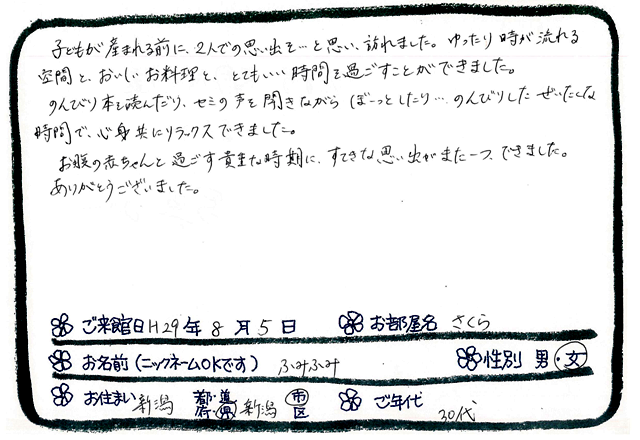 子どもが産まれる前に、2人での思い出を…と思い、訪れました。ゆったり時が流れる
空間と、おいしいお料理と、とてもいい時間を過ごすことができました。
のんびり本を読んだり、セミの声を聞きながら ぼーっとしたり…のんびりした ぜいたくな
時間で、心身共にリラックスできました。
お腹の赤ちゃんと過ごす貴重な時期に、すてきな思い出がまた一つ、できました。
ありがとうございました。
ご来館日 H29年 8月 5日 お部屋名 さくら
お名前(ニックネームOKです) ふみふみ 性別 男・女
お住まい 新潟 都・道 府・県 新潟 市 区 ご年代 30代